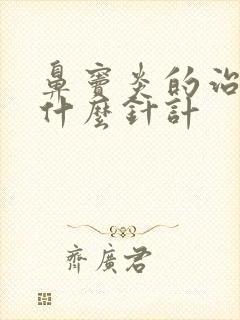 鼻竇炎的治
什麼針計
齊廣君